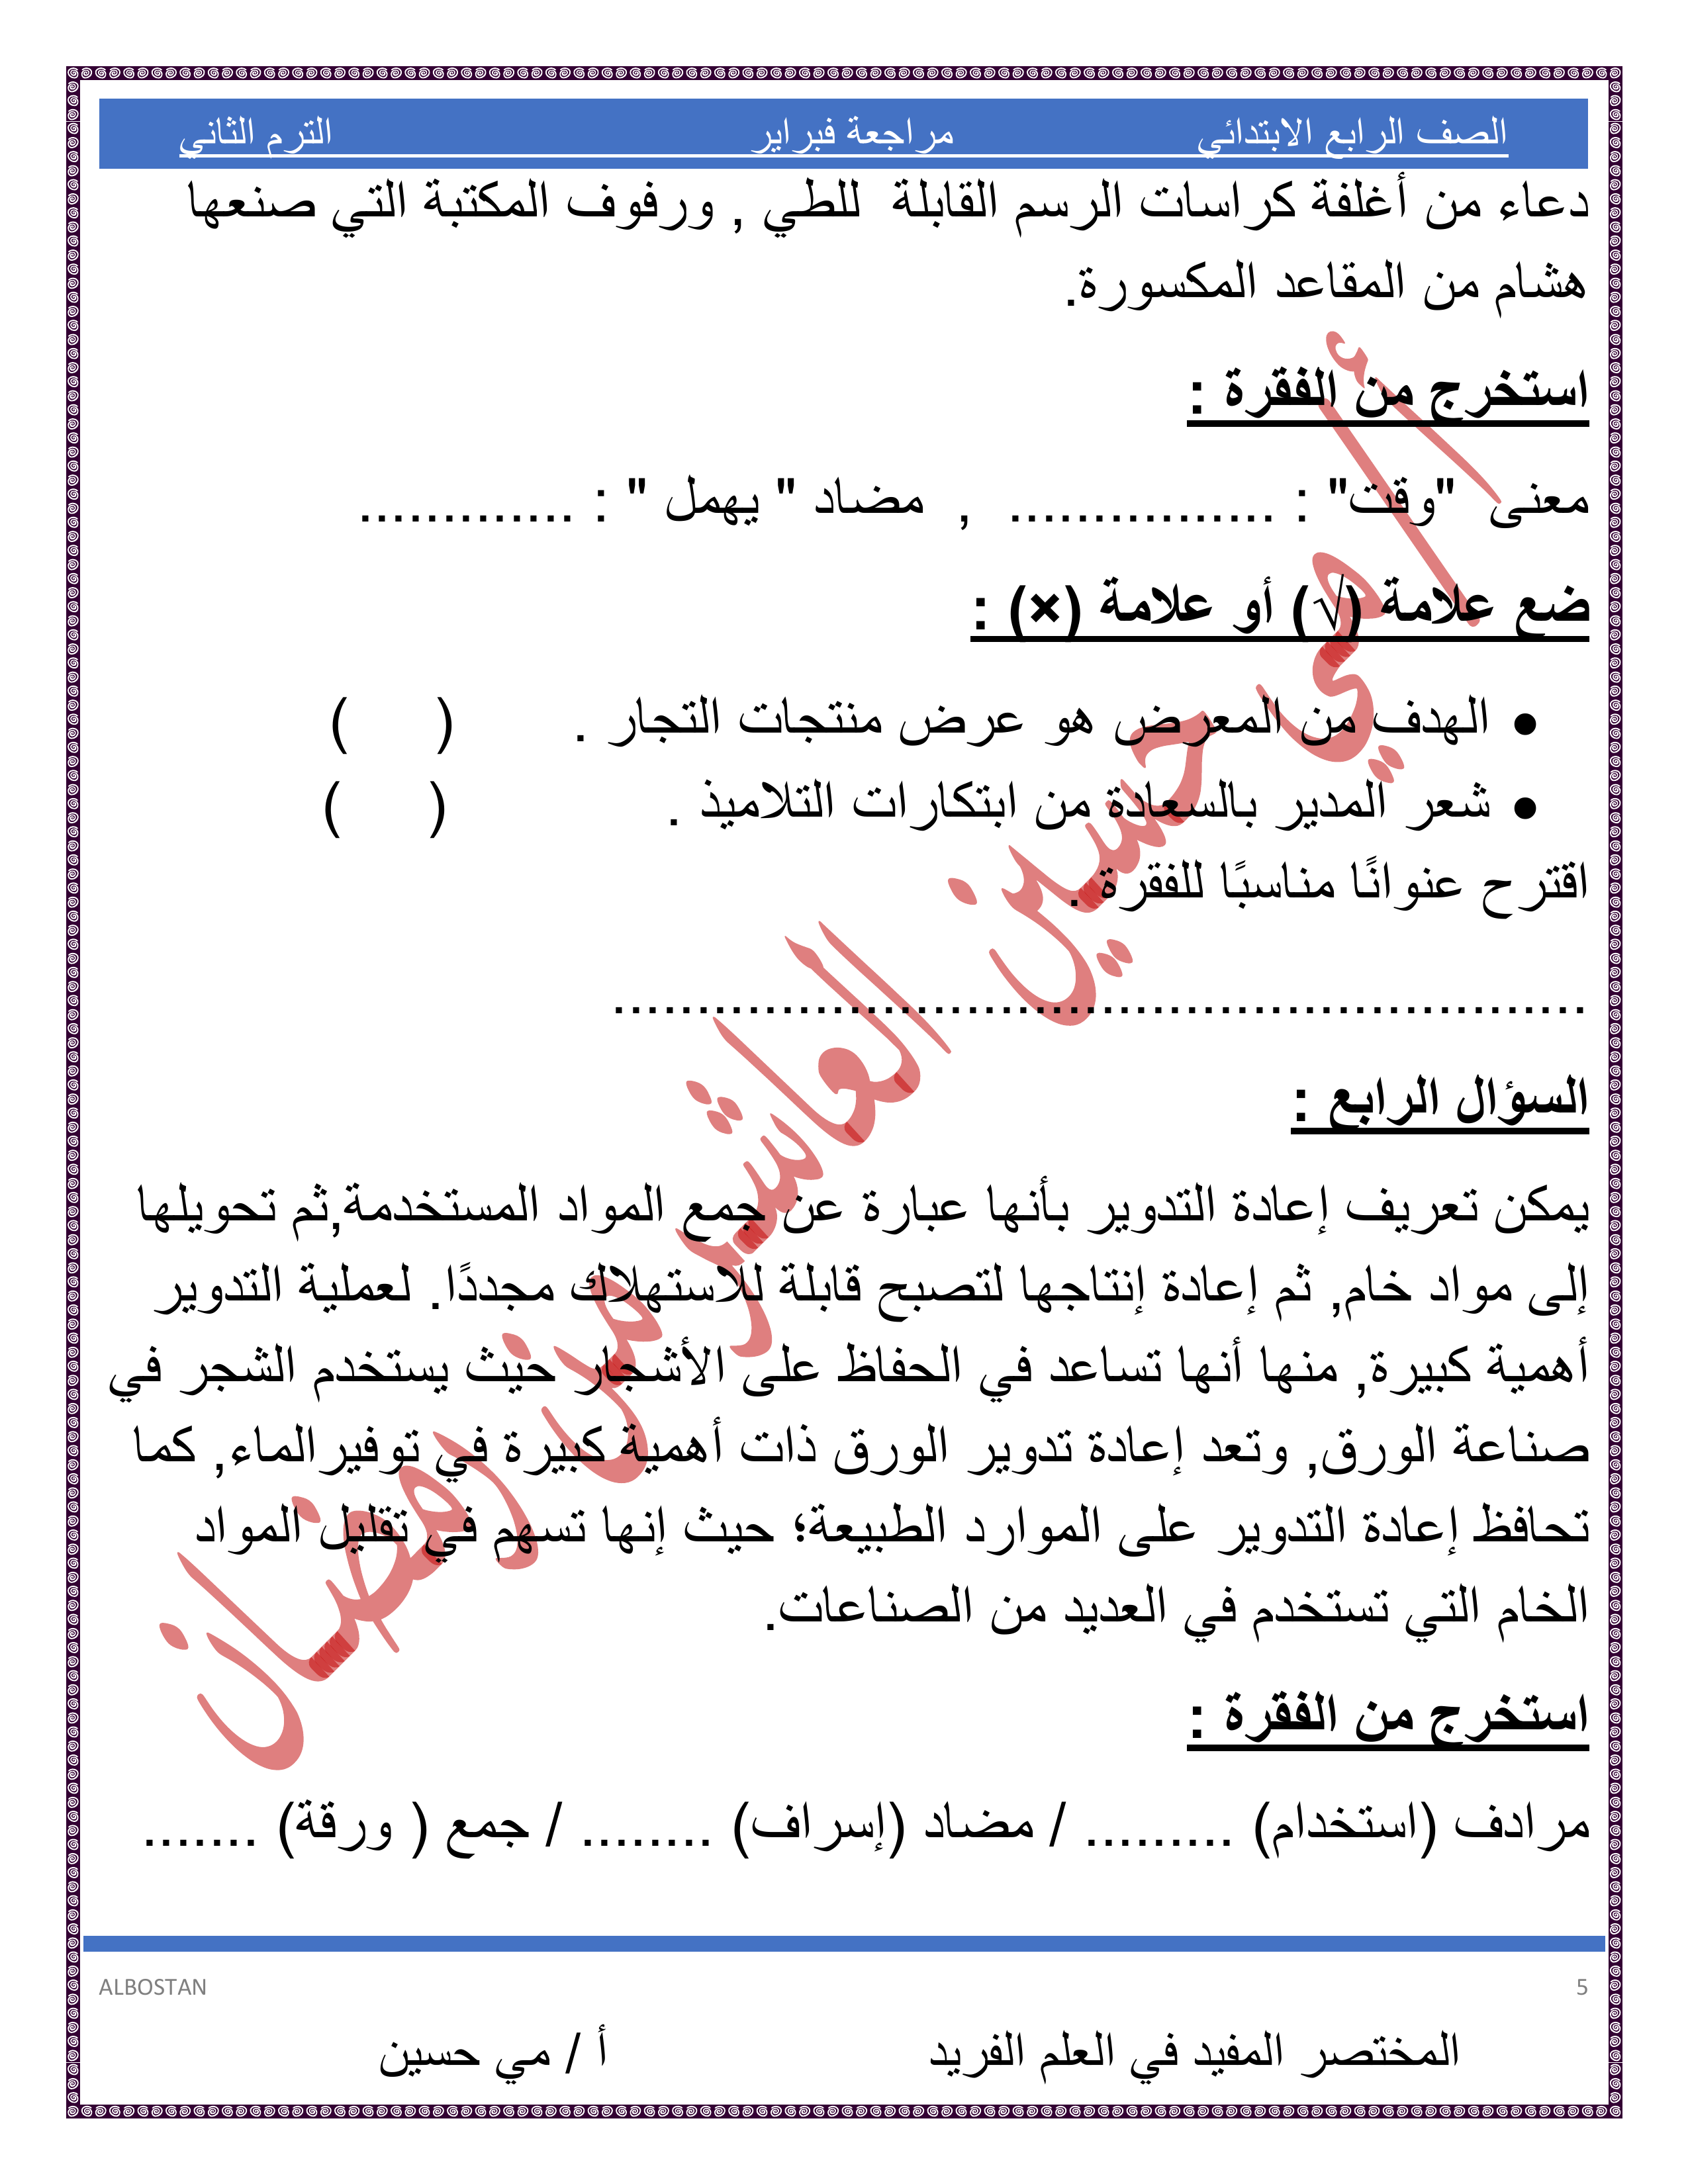 الصف الرابع الابتدائي مراجعة فبراير الترم الثاني
دعاء من أغلفة كراسات الرسم القابلة للطي , ورفوف المكتبة التي صنعها
هشام من المقاعد المكسورة.
استخرج من الفقرة :
معنى "وقت" : ................ , مضاد " يهمل " : .............
ضع علامة (√) أو علامة (×) :
• الهدف من المعرض هو عرض منتجات التجار . ( )
• شعر المدير بالسعادة من ابتكارات التلاميذ . ( )
اقترح عنوانًا مناسبًا للفقرة .
...........................................................
السؤال الرابع :
يمكن تعريف إعادة التدوير بأنها عبارة عن جمع المواد المستخدمة,ثم تحويلها
إلى مواد خام, ثم إعادة إنتاجها لتصبح قابلة للاستهلاك مجددًا. لعملية التدوير
أهمية كبيرة, منها أنها تساعد في الحفاظ على الأشجار حيث يستخدم الشجر في
صناعة الورق, وتعد إعادة تدوير الورق ذات أهمية كبيرة في توفيرالماء, كما
تحافظ إعادة التدوير على الموارد الطبيعة؛ حيث إنها تسهم في تقليل المواد
الخام التي تستخدم في العديد من الصناعات.
استخرج من الفقرة :
مرادف (استخدام) ......... / مضاد (إسراف) ........ / جمع ( ورقة) .......
أ/ مي حسين العاشر من رمضان
ALBOSTAN 5
المختصر المفيد في العلم الفريد أ / مي حسين